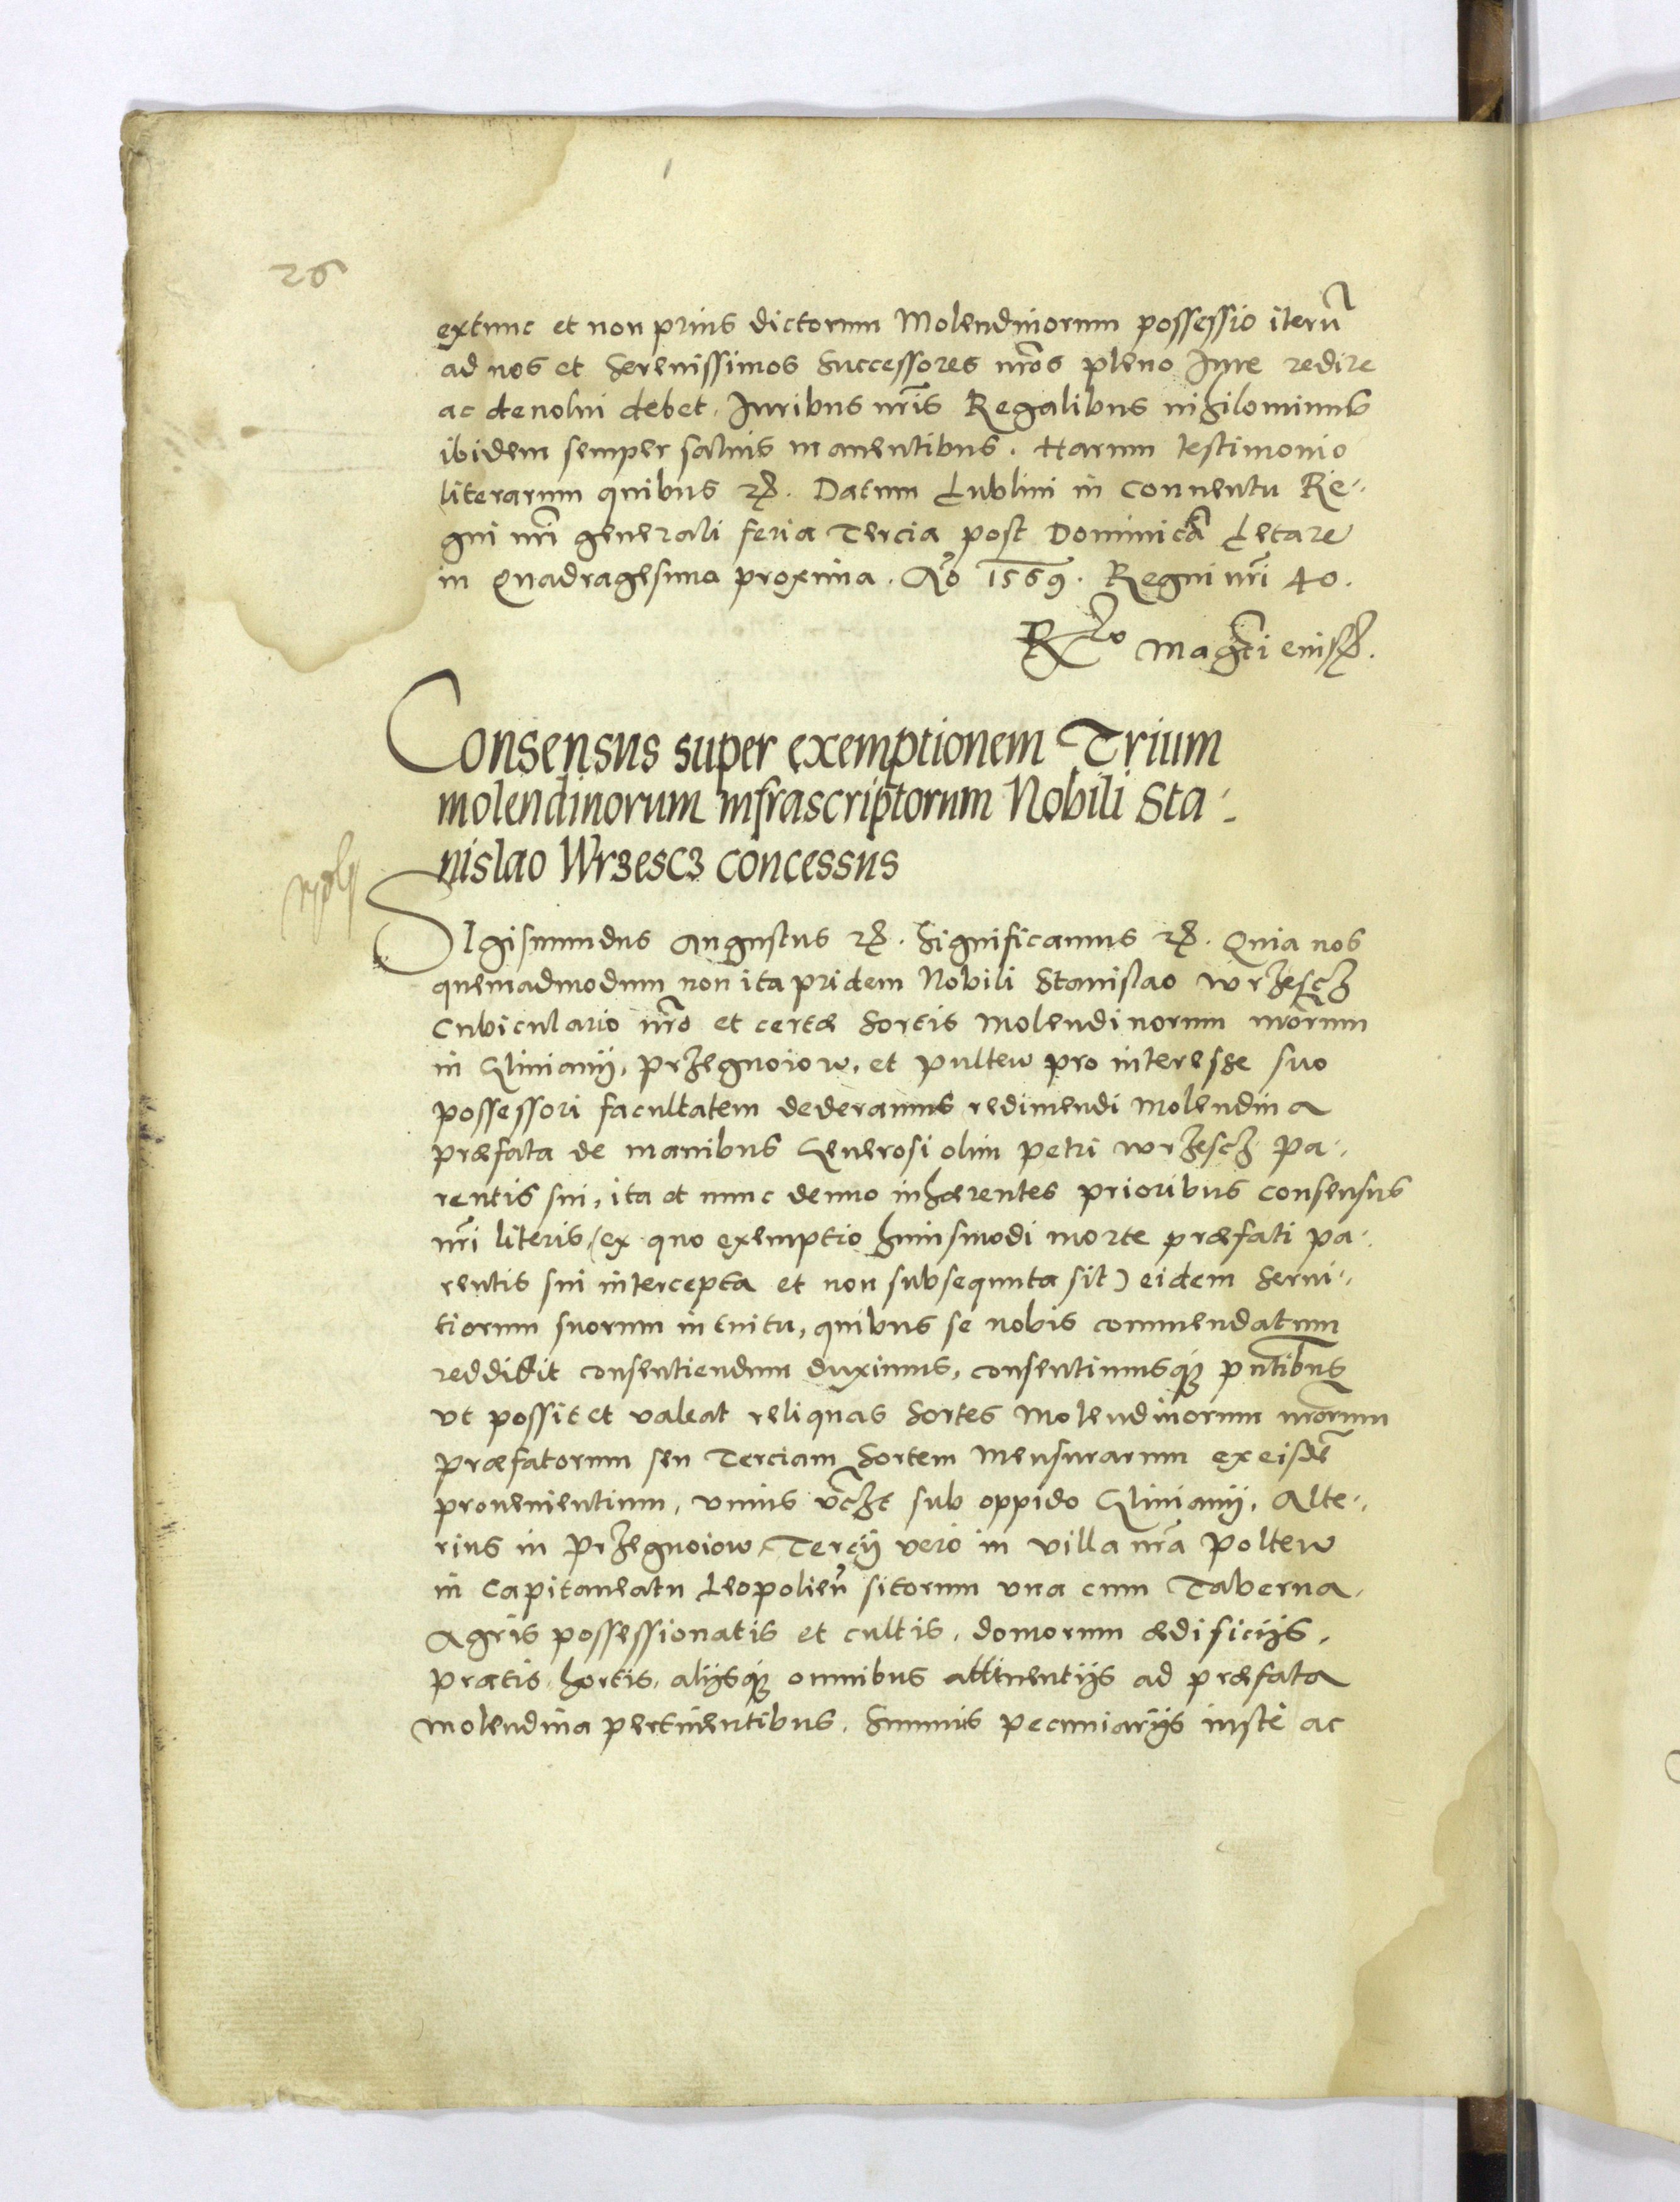 26
extunc et non prius dictorum Molendinorum possessio iterũ
ad nos et Serenissimos Successores nr̃os pleno Iure redire
ac deuolui debet. Iuribus nr̃is Regalibus nihilominus
ibidem semper saluis manentibus. Harum testimonio
literarum quibus etc. Datum Lublini in Conuentu Re-
gni nr̃i generali feria Tercia post Dominicã Letare
in Quadragesima proxima. Aõ 1569. Regni nr̃i 40.
R̃lo Mag̃ci eiusd.
Consensus super exemptionem Trium
molendinorum infrascriptorum Nobili Sta-
nislao Wrzescz concessus
SIgismundus Augustus etc. Significamus etc. Quia nos
quemadmodum non ita pridem Nobili Stanislao Wrzescz
Cubiculario nr̃o et certæ Sortis Molendinorum nr̃orum
in Glinianij, Przegnoiow, et Pultew pro interesse suo
possessori facultatem dederamus redimendi Molendina
præfata de manibus Generosi olim Petri Wrzescz Pa-
rentis sui, ita et nunc denuo inhærentes prioribus consensus
nr̃i literis, (ex quo exemptio huiusmodi morte præfati pa-
rentis sui intercepta et non subsequuta sit) eidem Serui-
tiorum suorum intuitu, quibus se nobis commendatum
reddidit consentiendum duximus, consentimusq́ue pñtibus
vt possit et valeat reliquas Sortes Molendinorum nr̃orum
præfatorum seu Terciam Sortem Mensurarum ex eisdẽ
prouenientium, vnius vczt sub oppido Glinianij, Alte-
rius in Przegnoiow, Tercij vero in villa nr̃a Poltew
in Capitaneatu Leopolieñ sitorum vna cum Taberna,
Agris possessionatis et cultis, domorum ædificijs,
pratis, hortis, alijsq́ue omnibus attinentijs ad præfata
molendina pertinentibus. Summis pecuniarijs iuste ac